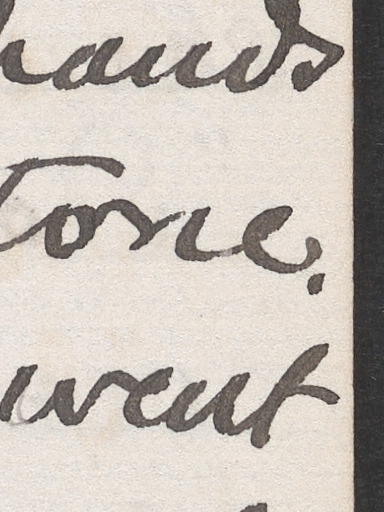 hands
tone.
went